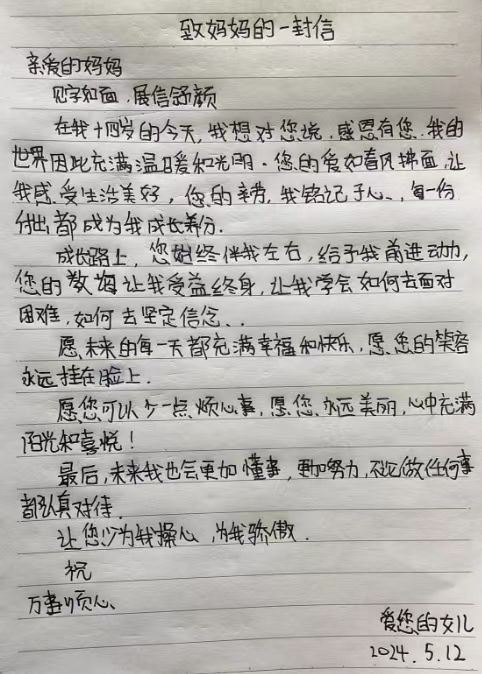 致妈妈的一封信
亲爱的妈妈
见字如面，展信舒颜
在我十四岁的今天，我想对您说，感恩有您，我的
世界因此充满温暖和光明。您的爱如春风拂面，让
我感受生活美好，您的辛劳，我铭记于心、，每一份
付出都成为我成长养分.
成长路上，您始终伴我左右，给予我前进动力，
您的教诲让我受益终身，让我学会如何去面对
困难，如何去坚定信念、.
愿未来的每一天都充满幸福和快乐，愿您的笑容
永远挂在脸上.
愿您可以少一点烦心事，愿您永远美丽，心中充满
阳光和喜悦！
最后，未来我也会更加懂事，更加努力，不论做任何事
都认真对待.
让您少为我操心，为我骄傲.
祝
万事顺心
爱您的女儿
2024.5.12